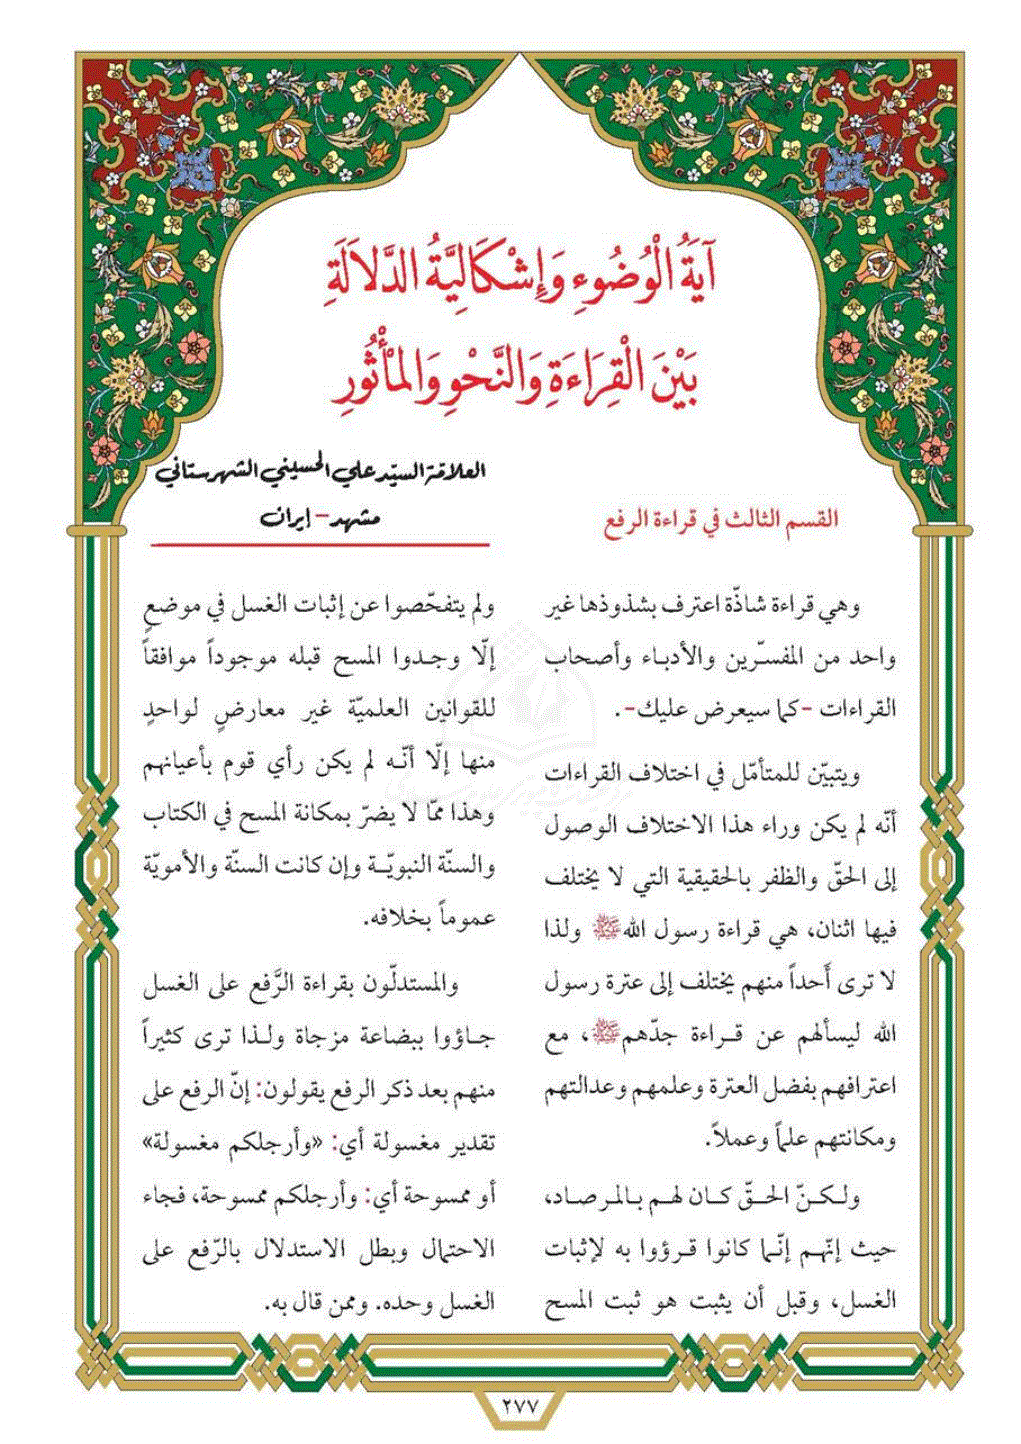 آيَةُ الْوُضُوءِ وَإِشْكَالِيَّةُ الدَّلاَلَةِ
بَيْنَ الْقِرَاءَةِ وَالنَّحْوِ وَالمْأْثُورِ
العلامة السيّد علي الحسيني الشهرستاني
مشهد – إيران
القسم الثالث في قراءة الرفع
وهي قراءة شاذّة اعترف بشذوذها غير
واحد من المفسّرين والأدباء وأصحاب
القراءات -كما سيعرض عليك-.
ويتبيّن للمتأمّل في اختلاف القراءات
أنّه لم يكن وراء هذا الاختلاف الوصول
إلى الحقّ والظفر بالحقيقية التي لا يختلف
فيها اثنان، هي قراءة رسول الله ﷺ ولذا
لا ترى أَحداً منهم يختلف إلى عترة رسول
الله ليسألهم عن قراءة جدّهم ﷺ، مع
اعترافهم بفضل العترة وعلمهم وعدالتهم
ومكانتهم علماً وعملاً.
ولكنّ الحقّ كان لهم بالمرصاد،
حيث إنّهم إنّما كانوا قرؤوا به لإثبات
الغسل، وقبل أن يثبت هو ثبت المسح
ولم يتفحّصوا عن إثبات الغسل في موضعٍ
إلّا وجدوا المسح قبله موجوداً موافقاً
للقوانين العلميّة غير معارضٍ لواحدٍ
منها إلّا أنّه لم يكن رأي قوم بأعيانهم
وهذا ممّا لا يضرّ بمكانة المسح في الكتاب
والسنّة النبويّة وإن كانت السنّة والأمويّة
عموماً بخلافه.
والمستدلّون بقراءة الرَّفع على الغسل
جاؤوا ببضاعة مزجاة ولذا ترى كثيراً
منهم بعد ذكر الرفع يقولون: إنّ الرفع على
تقدير مغسولة أي: «وأرجلكم مغسولة»
أو ممسوحة أي: وأرجلكم ممسوحة، فجاء
الاحتمال وبطل الاستدلال بالرّفع على
الغسل وحده. وممن قال به.
٢٧٧